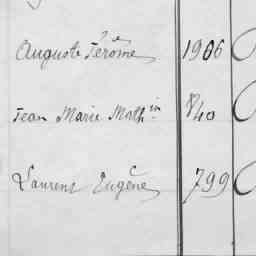 Auguste Jérôme 1906
Jean Marie Math.in 840
Laurent Eugène 799